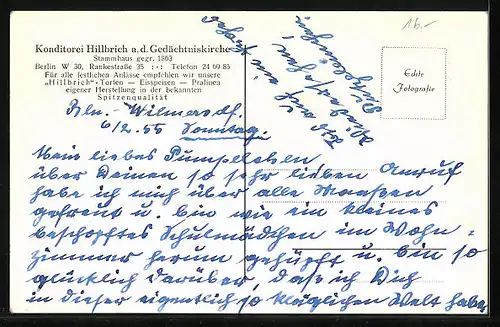 Konditorei Hillbrich a. d. Gedächtniskirche
Stammhaus gegr. 1863
Berlin W 30, Rankestraße 35 :-: Telefon 24 69 85
Für alle festlichen Anlässe empfehlen wir unsere
„Hillbrich“-Torten — Eisspeisen — Pralinen
eigener Herstellung in der bekannten
Spitzenqualität
16.-
Echte
Fotografie
Bln.-Wilmersdf.
6/2. 55 Sonntag.
Mein liebes Pummelchen
über Deinen so sehr lieben Anruf
habe ich mich über alle Maassen
gefreut u. bin wie ein kleines
beschopftes Schulmädchen im Wohn=
zimmer herum gehüpft u. bin so
glücklich darüber, daß ich Dich
in dieser eigentlich so kläglichen Welt habe.